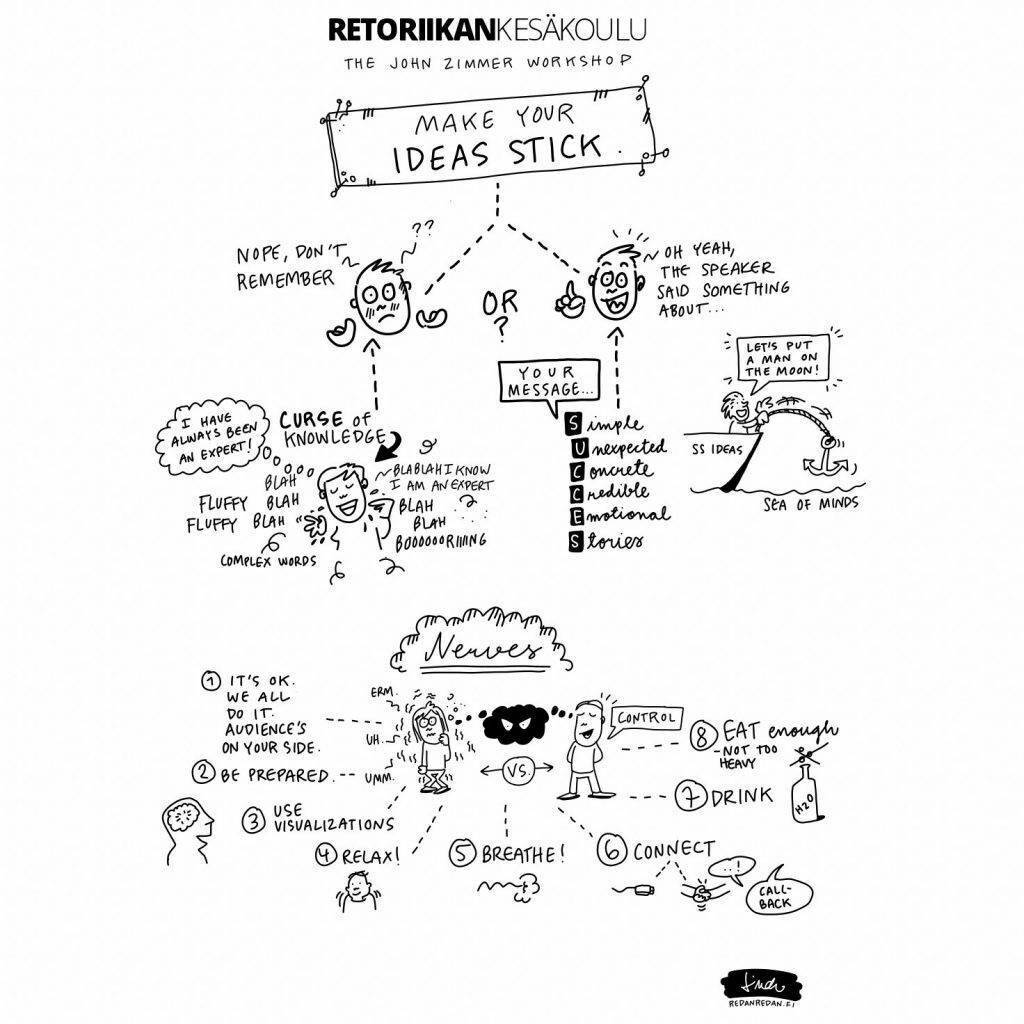 RETORIIKANKESÄKOULU
THE JOHN ZIMMER WORKSHOP
MAKE YOUR
IDEAS STICK.
NOPE, DON'T
REMEMBER
??
OR
?
OH YEAH,
THE SPEAKER
SAID SOMETHING
ABOUT...
I HAVE
ALWAYS BEEN
AN EXPERT!
CURSE of
KNOWLEDGE
BLAH
FLUFFY BLAH
FLUFFY BLAH
COMPLEX WORDS
BLABLAH I KNOW
I AM AN EXPERT
BLAH
BLAH
BOOOOOORIIIING
YOUR
MESSAGE...
Simple
Unexpected
Concrete
Credible
Emotional
Stories
LET'S PUT
A MAN ON
THE MOON!
SS IDEAS
SEA OF MINDS
Nerves
1 IT'S OK.
WE ALL
DO IT.
AUDIENCE'S
ON YOUR SIDE.
2 BE PREPARED.
3 USE
VISUALIZATIONS
4 RELAX!
5 BREATHE!
6 CONNECT
...!
CALL-
BACK
7 DRINK
H2O
8 EAT enough
- NOT TOO
HEAVY
ERM.
UH.
UMM.
VS.
CONTROL
REDANREDAN.FI